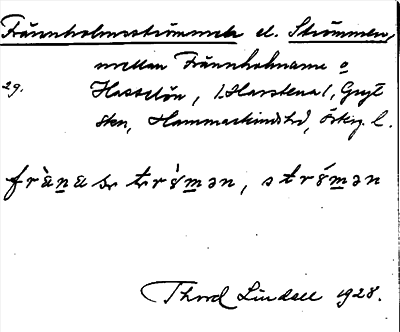 Frännholmsströmmen el. Strömmen,
mellan Frännholmarna o
29. Hasselön, 1. Harstena 1, Gryt
skn, Hammarkinds hd, Östrg. l.
strö́mən
Thord Lindell 1928.